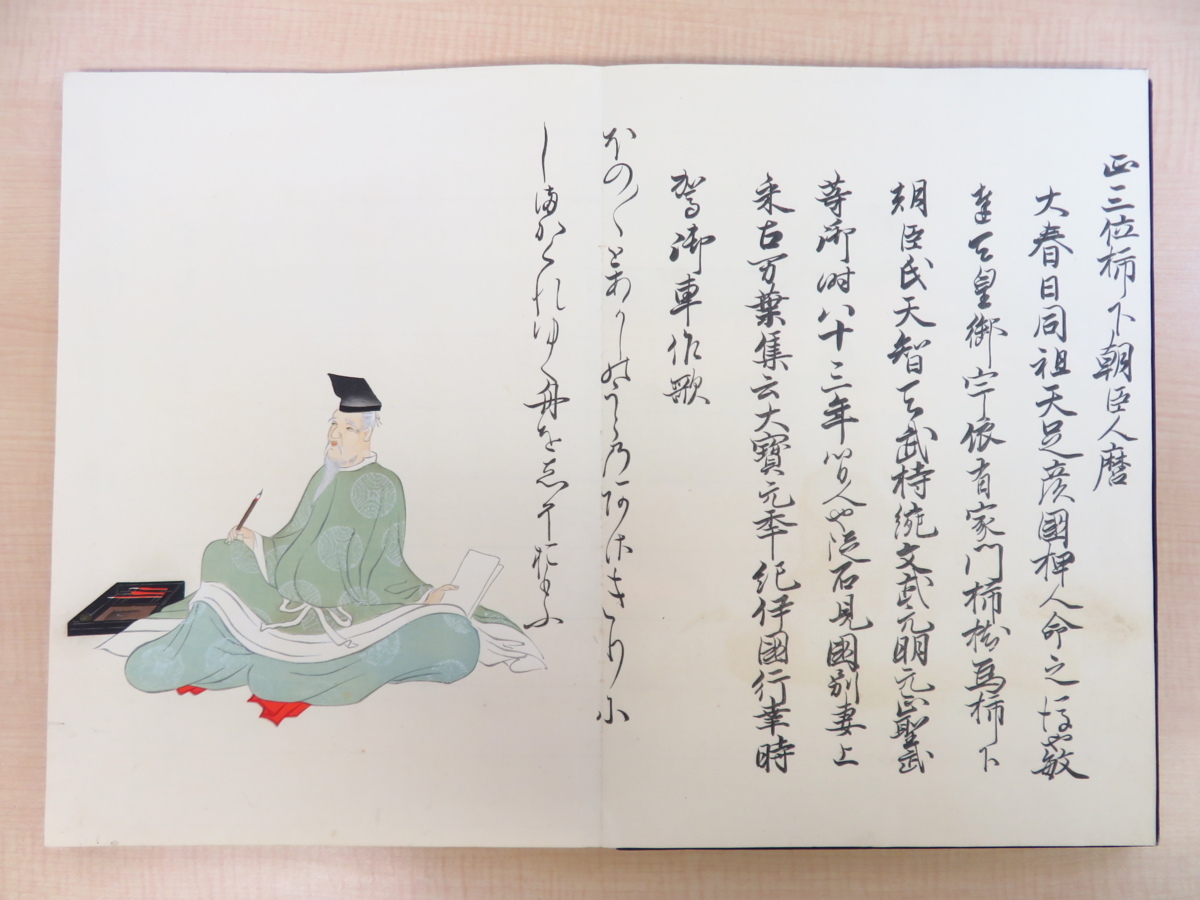 正三位柿下朝臣人麿
大春日同祖天足彦國押人命之後也敏
達天皇御宇依有家門柿樹為柿下
朝臣氏天智天武持統文武元明元正聖武
等御時八十三年間人也従石見國別妻上
来古万葉集云大寶元年紀伊國行幸時
駕御車作歌
ほの〱とあかしのうらのあさきりに
しまかくれゆく舟をしそおもふ